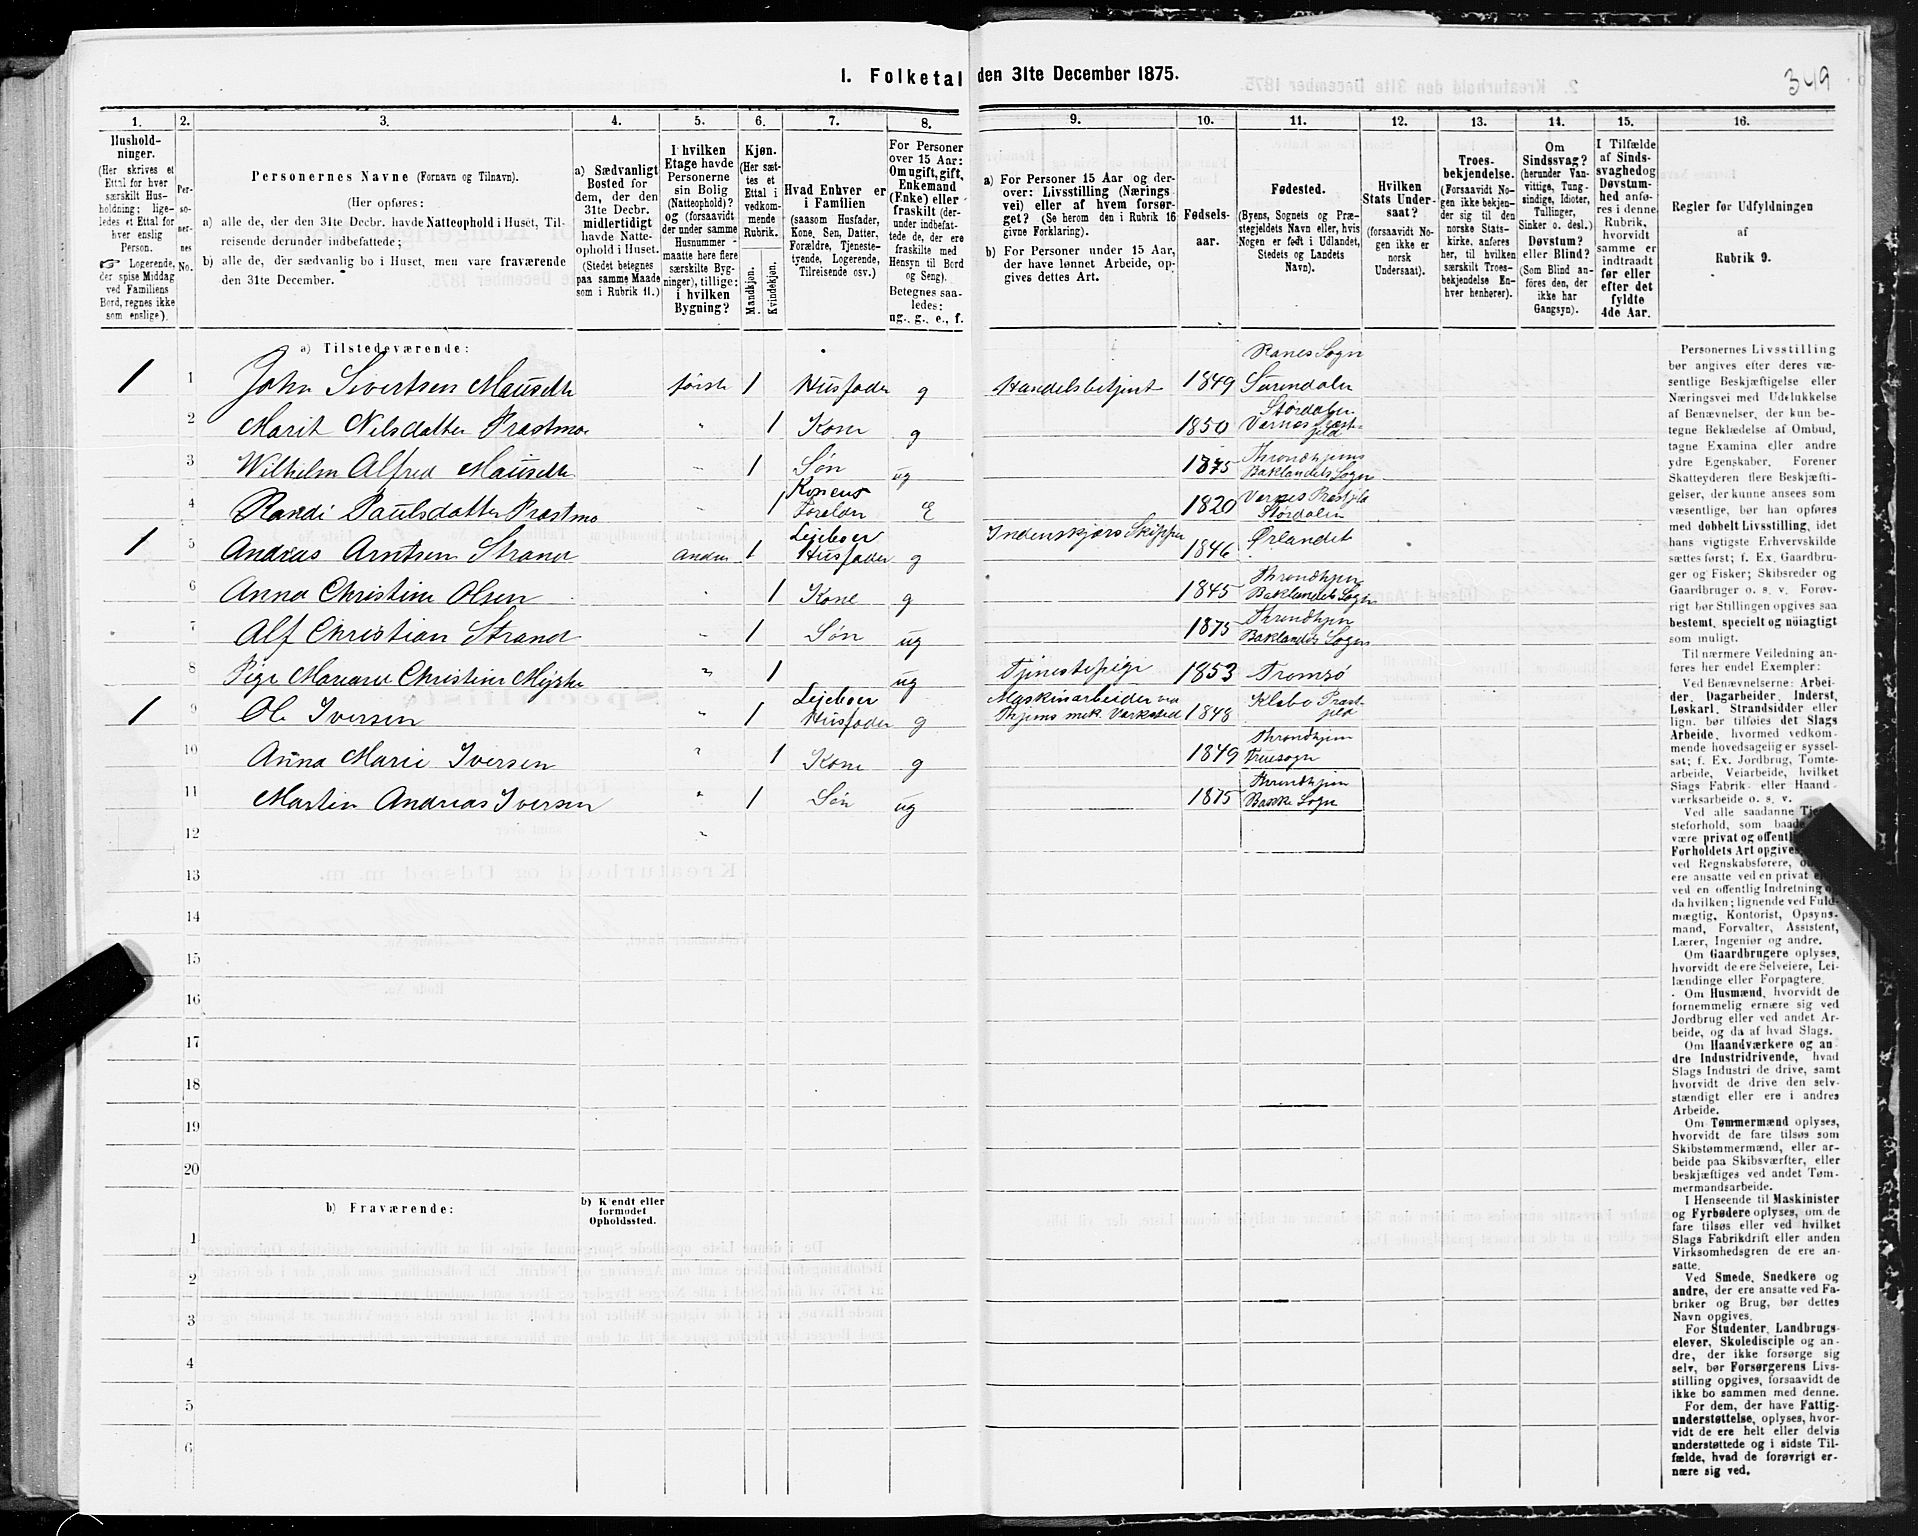 I. Folketal den 31te December 1875.
349
1.
2.
3.
4.
5.
6.
7.
8.
9.
10.
11.
12.
13.
14.
15.
16.
Hushold-
ninger.
(Her skrives et
Ettal for hver
særskilt Hus-
holdning; lige-
ledes et Ettal for
hver enslig
Person.
☞ Logerende,
der spise Middag
ved Familiens
Bord, regnes ikke
som enslige).
Per-
so-
ner-
nes
No.
Personernes Navne (Fornavn og Tilnavn).
(Her opføres:
a) alle de, der den 31te Decbr. havde Natteophold i Huset, Til-
reisende derunder indbefattede;
b) alle de, der sædvanlig bo i Huset, men vare fraværende
den 31te December.
a) Sædvanligt
Bosted for
dem, der den
31te Decbr.
midlertidigt
havde Natte-
ophold i Huset.
(Stedet betegnes
paa samme Maade
som i Rubrik 11.)
I hvilken
Etage havde
Personerne
sin Bolig
(Natteophold)?
og (forsaavidt
der under samme
Husnummer
maatte høre flere
særskilte Byg-
ninger), tillige:
i hvilken
Bygning?
Kjøn.
(Her sæt-
tes et
Ettal i
vedkom-
mende
Rubrik.
Mandkjøn.
Kvindekjøn.
Hvad Enhver er
i Familien
(saasom Husfader,
Kone, Søn, Datter,
Forældre, Tjeneste-
tyende, Logerende,
Tilreisende osv.)
For Personer
over 15 Aar:
Om ugift, gift,
Enkemand
(Enke) eller
fraskilt (der-
under indbefat-
tede de, der ere
fraskilte med
Hensyn til Bord
og Seng).
Betegnes saa-
ledes:
ug., g., e., f.
a) For Personer 15 Aar og der-
over: Livsstilling (Nærings
vei) eller af hvem forsør-
get? (Se herom den i Rubrik 16
givne Forklaring).
b) For Personer under 15 Aar,
der have lønnet Arbeide, op-
gives dettes Art.
Fødsels-
aar.
Fødested.
(Byens, Sognets og Præ-
stegjeldets Navn eller, hvis
Nogen er født i Udlandet,
Stedets og Landets
Navn).
Hvilken
Stats Under-
saat?
(forsaavidt No-
gen ikke er
norsk
Undersaat).
Troes-
bekjendelse.
(Forsaavidt No-
gen ikke bekjen-
der sig til den
norske Stats-
kirke, anføres
her, til hvilken
særskilt Troes-
bekjendelse En-
hver henhører).
Om
Sindssvag?
(herunder Van-
vittige, Tung-
sindige, Idioter,
Tullinger,
Sinker o. desl.)
Døvstum?
eller Blind?
(Som Blind an-
føres den, der
ikke har
Gangsyn).
I Tilfælde
af Sinds-
svaghed og
Døvstum-
hed anfø-
res i denne
Rubrik,
hvorvidt
samme er
indtraadt
før eller
efter det
fyldte
4de Aar.
Regler for Udfyldningen
af
Rubrik 9.
a) Tilstedeværende:
1 1 John Sivertsen Mauseth første 1 Husfader g Handelsbetjent 1849 Ranes Sogn Surendalen
2 Marit Nilsdatter Præstmo " 1 Kone g 1850 Størdalen Vernes Præst- gjeld
3 Wilhelm Alfred Mauseth " 1 Søn ug 1875 Throndhjems Baklandets Sogn
4 Randi Paulsdatter Præstmo " 1 Konens Foreldre E 1820 Vernes Præstgjeld Størdalen
1 5 Andreas Arntsen Strand anden 1 Leieboer Husfader g Indenskjærs Skipper 1846 Ørlandet
6 Anna Christine Olsen " 1 Kone g 1845 Throndhjem Baklandets Sogn
7 Alf Christian Strand " 1 Søn ug 1875 Throndhjem Baklandets Sogn
8 Pige Christine " 1 ug Tjenestepige 1853 Tromsø
1 9 Ole Iversen " 1 Leieboer Husfader g Maskinarbeider ved Thjems mek. Værksted 1848 Klæbo Præst- gjeld
10 Anna Marie Iversen " 1 Kone g 1849 Throndhjem Fruesogn
11 Martin Andreas Iversen " 1 Søn ug 1875 Throndhjem Bakke Sogn
12 "
13
14
15
16
17
18
19
20
b) Fraværende:
b) Kjendt eller
formodet
Opholdssted.
1
2
3
4
5
6
Personernes Livsstilling
bør angives efter deres væ-
sentlige Beskjæftigelse eller
Næringsvei med Udelukkelse
af Benævnelser, der kun be-
tegne Beklædelse af Ombud,
tagne Examina eller andre
ydre Egenskaber. Forener
Skatteyderen flere Beskjæfti-
gelser, der kunne ansees som
væsentlige, bør han opføres
med dobbelt Livsstilling, idet
hans vigtigste Erhvervskilde
sættes først; f. Ex. Gaardbru-
ger og Fisker; Skibsreder og
Gaardbruger o. s. v. Forøv-
rigt bør Stillingen opgives saa
bestemt, specielt og nöiagtigt
som muligt.
Til nærmere Veiledning an-
føres her endel Exempler:
Ved Benævnelserne: Arbei-
der, Dagarbeider, Inderst,
Løskarl, Strandsidder eller
lign. bør tilføies det Slags
Arbeide, hvormed vedkom-
mende hovedsagelig er syssel-
sat; f. Ex. Jordbrug, Tomte-
arbeide, Veiarbeide, hvilket
Slags Fabrik- eller Haand-
værksarbeide o. s. v.
Ved alle saadanne Tje-
steforhold, som baade
være privat og offentli
Forholdets Art opgives,
ved Regnskabsførere,
ere ansatte ved en privat e
ved en offentlig Indretning o
da hvilken; lignende ved Fuld-
mægtig, Kontorist, Opsyns-
mand, Forvalter, Assistent,
Lærer, Ingeniør og andre.
Om Gaardbrugere oplyses,
hvorvidt de ere Selveiere, Lei-
lændinge eller Forpagtere.
Om Husmænd, hvorvidt de
fornemmelig ernære sig ved
Jordbrug eller ved andet Ar-
beide, og da af hvad Slags.
Om Haandværkere og an-
dre Industridrivende, hvad
Slags Industri de drive, samt
hvorvidt de drive den selv-
stændigt eller ere i andres
Arbeide.
Om Tømmermænd oplyses,
hvorvidt de fare tilsøs som
Skibstømmermænd, eller ar-
beide paa Skibsværfter, eller
beskjæftiges ved andet Tøm-
mermandsarbeide.
I Henseende til Maskinister
og Fyrbødere oplyses, om de
fare tilsøs eller ved hvilket
Slags Fabrikdrift eller anden
Virksomhedsgren de ere an-
satte.
Ved Smede, Snedkere og
andre, der ere ansatte ved Fa-
briker og Brug, bør dettes
Navn opgives.
For Studenter, Landbrugs-
elever, Skoledisciple og an-
dre, der ikke forsørge sig
selv, bør Forsørgerens Livs-
stilling opgives, forsaavidt de
ikke bo sammen med denne.
For dem, der have Fattig-
understøttelse, oplyses, hvor-
vidt de ere helt eller delvis
understøttede og i sidste Til-
fælde, hvad de forøvrigt er-
nære sig ved.